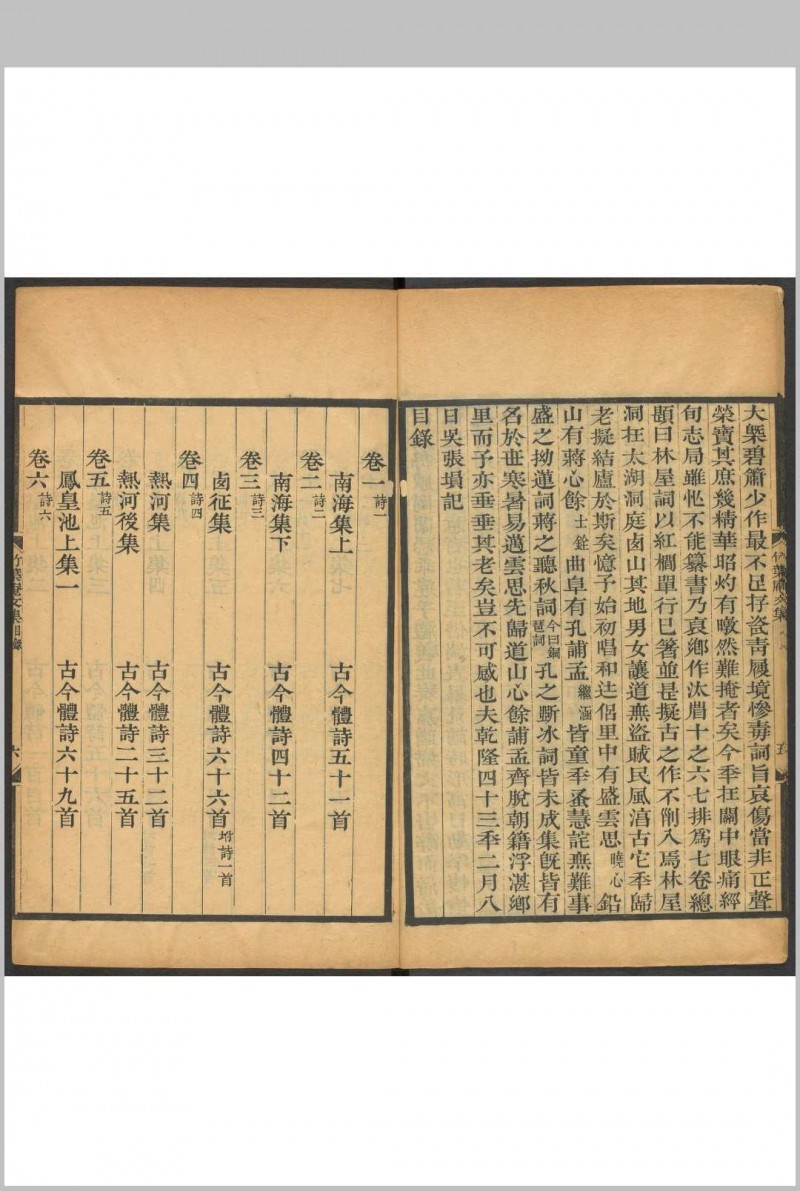 大㮣碧簫少作最不足㧱瓷靑屐境慘毒詞旨哀傷當非正聲
榮寶其庶幾精華昭灼有暾然難掩者矣今秊在關中眼痛經
旬志局雖忙不能纂書乃哀鄉作汰𥄗十之六七排爲七卷總
題曰林屋詞以紅櫚單行已箸並是擬古之作不劀入焉林屋
洞在太湖洞庭卥山其地男女讓道無盜賊民風湻古它秊歸
老擬結廬於斯矣憶予始初唱和𨒪侣里中有盛雲思曉心鉛
山有蔣心餘士銓曲阜有孔誧孟繼涵皆童秊蚤慧詫無難事
盛之拗蓮詞蔣之聽秋詞今曰銅琶詞孔之斲冰詞皆未成集旣皆有
名於世寒暑易邁雲思先歸道山心餘誧孟齊脫朝籍浮湛鄉
里而予亦垂垂其老矣豈不可感也夫乾隆四十三秊二月八
日吳張塤記
目錄
竹葉庵文集
五
卷一詩一
南海集上 古今體詩五十一首
卷二詩二
南海集下 古今體詩四十二首
卷三詩三
卥征集 古今體詩六十六首坿詩一首
卷四詩四
熱河集 古今體詩三十二首
熱河後集 古今體詩二十五首
卷五詩五
鳳皇池上集一 古今體詩六十九首
卷六詩六
竹葉庵文集目錄
六